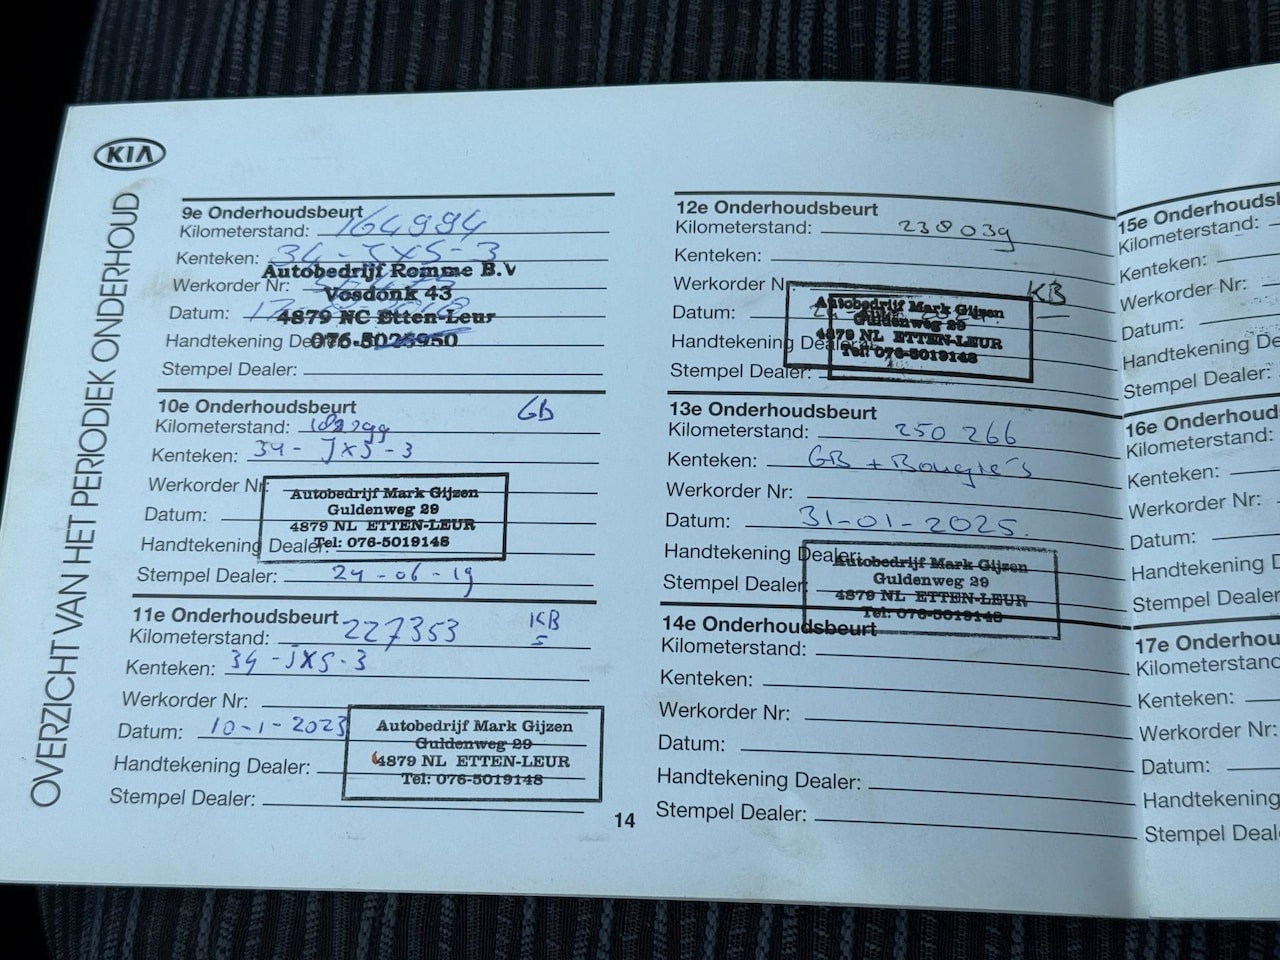 KIA
OVERZICHT VAN HET PERIODIEK ONDERHOUD
9e Onderhoudsbeurt
Kilometerstand: 164994
Kenteken: 34-JXS-3
Autobedrijf Romme B.V
Werkorder Nr:
Vosdonk 43
Datum:
4879 NC Etten-Leur
Handtekening De
076-5025950
Stempel Dealer:
10e Onderhoudsbeurt GB
Kilometerstand:
Kenteken: 34-JXS-3
Werkorder Nr:
Autobedrijf Mark Gijzen
Guldenweg 29
Datum:
4879 NL ETTEN-LEUR
Handtekening Dealer:
Tel: 076-5019148
Stempel Dealer: 24-06-19
11e Onderhoudsbeurt KB
Kilometerstand: 227353 S
Kenteken: 34-JXS-3
Werkorder Nr:
Datum: 10-1-2023
Autobedrijf Mark Gijzen
Guldenweg 29
4879 NL ETTEN-LEUR
Tel: 076-5019148
Handtekening Dealer:
Stempel Dealer:
14
12e Onderhoudsbeurt
Kilometerstand: 238039
Kenteken:
Werkorder N KB
Autobedrijf Mark Gijzen
Datum:
Guldenweg 29
4879 NL ETTEN-LEUR
Handtekening Dealer:
Tel: 076-5019148
Stempel Dealer:
13e Onderhoudsbeurt
Kilometerstand: 250 266
Kenteken: GB + Bougie's
Werkorder Nr:
Datum: 31-01-2025.
Handtekening Dealer:
Autobedrijf Mark Gijzen
Guldenweg 29
Stempel Dealer
4879 NL ETTEN-LEUR
Tel: 076-5019148
14e Onderhoudsbeurt
Kilometerstand:
Kenteken:
Werkorder Nr:
Datum:
Handtekening Dealer:
Stempel Dealer:
15e Onderhouds
Kilometerstand:
Kenteken:
Werkorder Nr:
Datum:
Handtekening De
Stempel Dealer:
16e Onderhoud
Kilometerstand:
Kenteken:
Werkorder Nr:
Datum:
Handtekening
Stempel Dealer
17e Onderhou
Kilometerstand
Kenteken:
Werkorder Nr:
Datum:
Handtekening
Stempel Deal